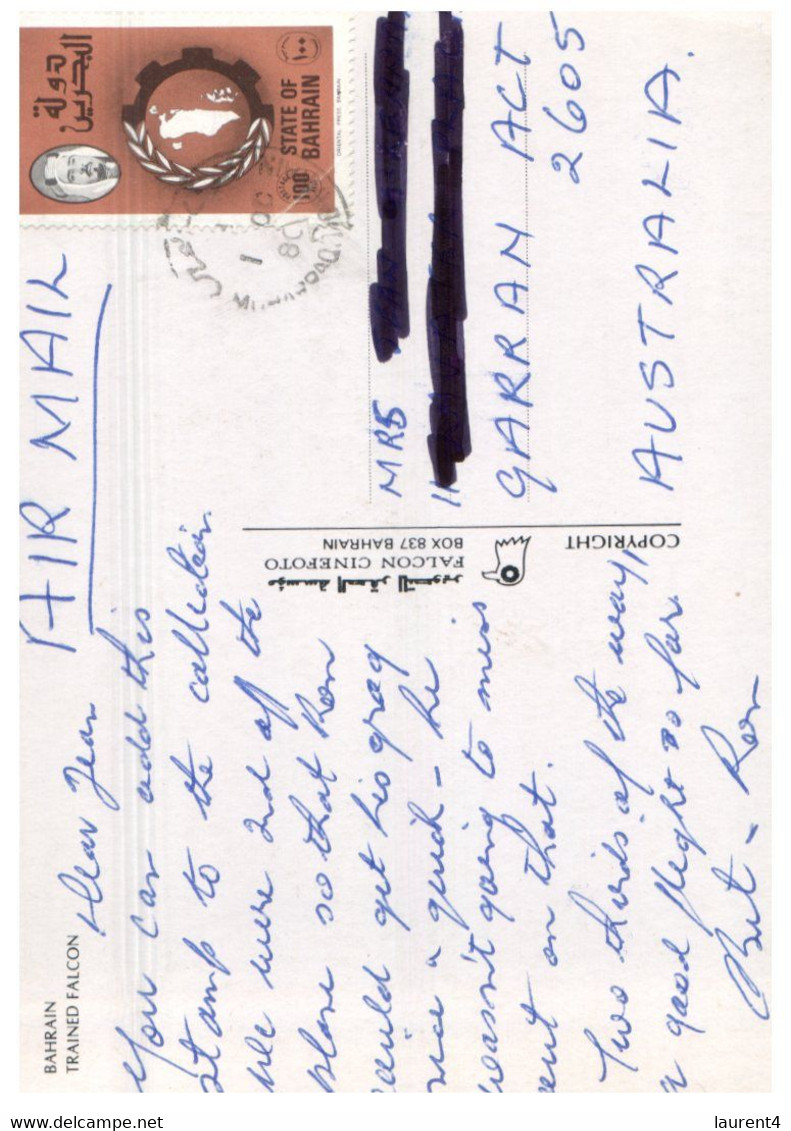 BAHRAIN
TRAINED FALCON
AIR MAIL
Dear Jean
You can add this
stamp to the collection.
We were 2nd off the
plane so that Ron
could get his grog
nice & quick – he
wasn't going to miss
out on that.
Two thirds of the way,
a good flight so far.
But – Ron
COPYRIGHT
مؤسسة الصقر للتصوير
FALCON CINEFOTO
BOX 837 BAHRAIN
دولة
البحرين
١٠٠
100
STATE OF
BAHRAIN
ORIENTAL PRESS, BAHRAIN
1 OC
80
MRS
GARRAN ACT
2605
AUSTRALIA.
laurent4